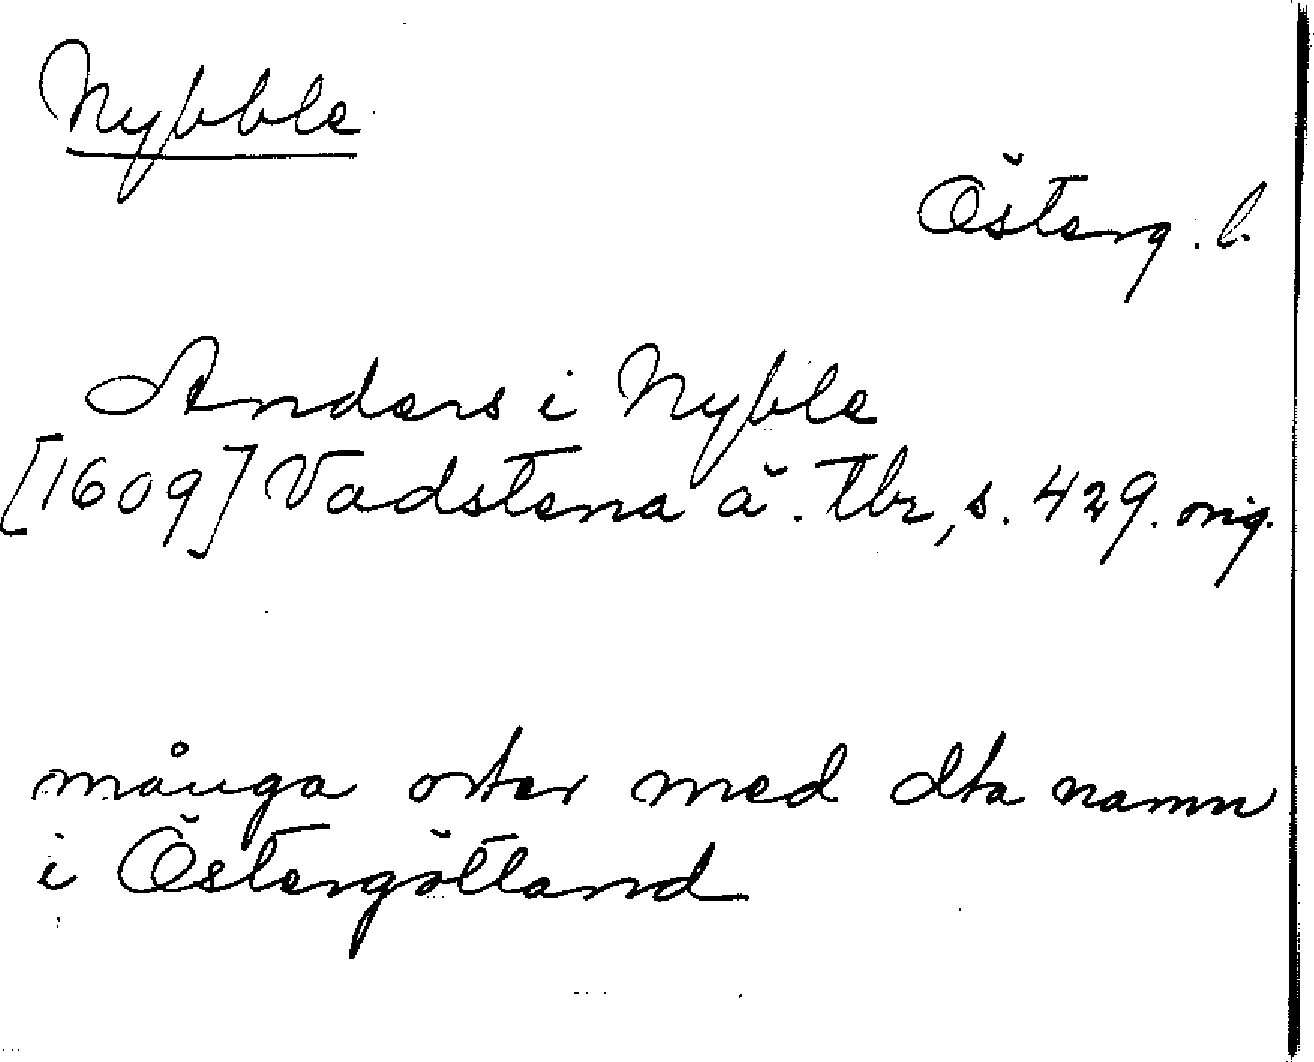 Nybble
Österg. l.
Anders i Nyble
[1609] Vadstena ä. tbr, s. 429. orig.
många orter med dta namn
i Östergötland